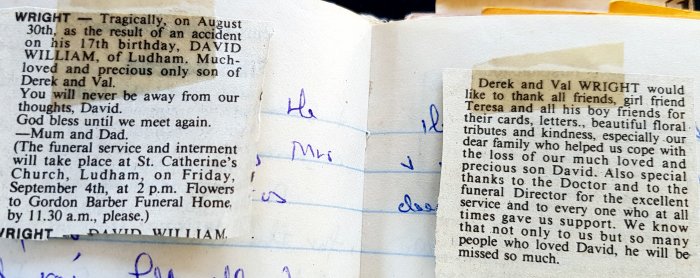 WRIGHT — Tragically, on August
30th, as the result of an accident
on his 17th birthday, DAVID
WILLIAM, of Ludham. Much-
loved and precious only son of
Derek and Val.
You will never be away from our
thoughts, David.
God bless until we meet again.
—Mum and Dad.
(The funeral service and interment
will take place at St. Catherine's
Church, Ludham, on Friday,
September 4th, at 2 p.m. Flowers
to Gordon Barber Funeral Home,
by 11.30 a.m., please.)
WRIGHT — DAVID WILLIAM,
He
Mrs
Derek and Val WRIGHT would
like to thank all friends, girl friend
Teresa and all his boy friends for
their cards, letters., beautiful floral
tributes and kindness, especially our
dear family who helped us cope with
the loss of our much loved and
precious son David. Also special
thanks to the Doctor and to the
funeral Director for the excellent
service and to every one who at all
times gave us support. We know
that not only to us but so many
people who loved David, he will be
missed so much.